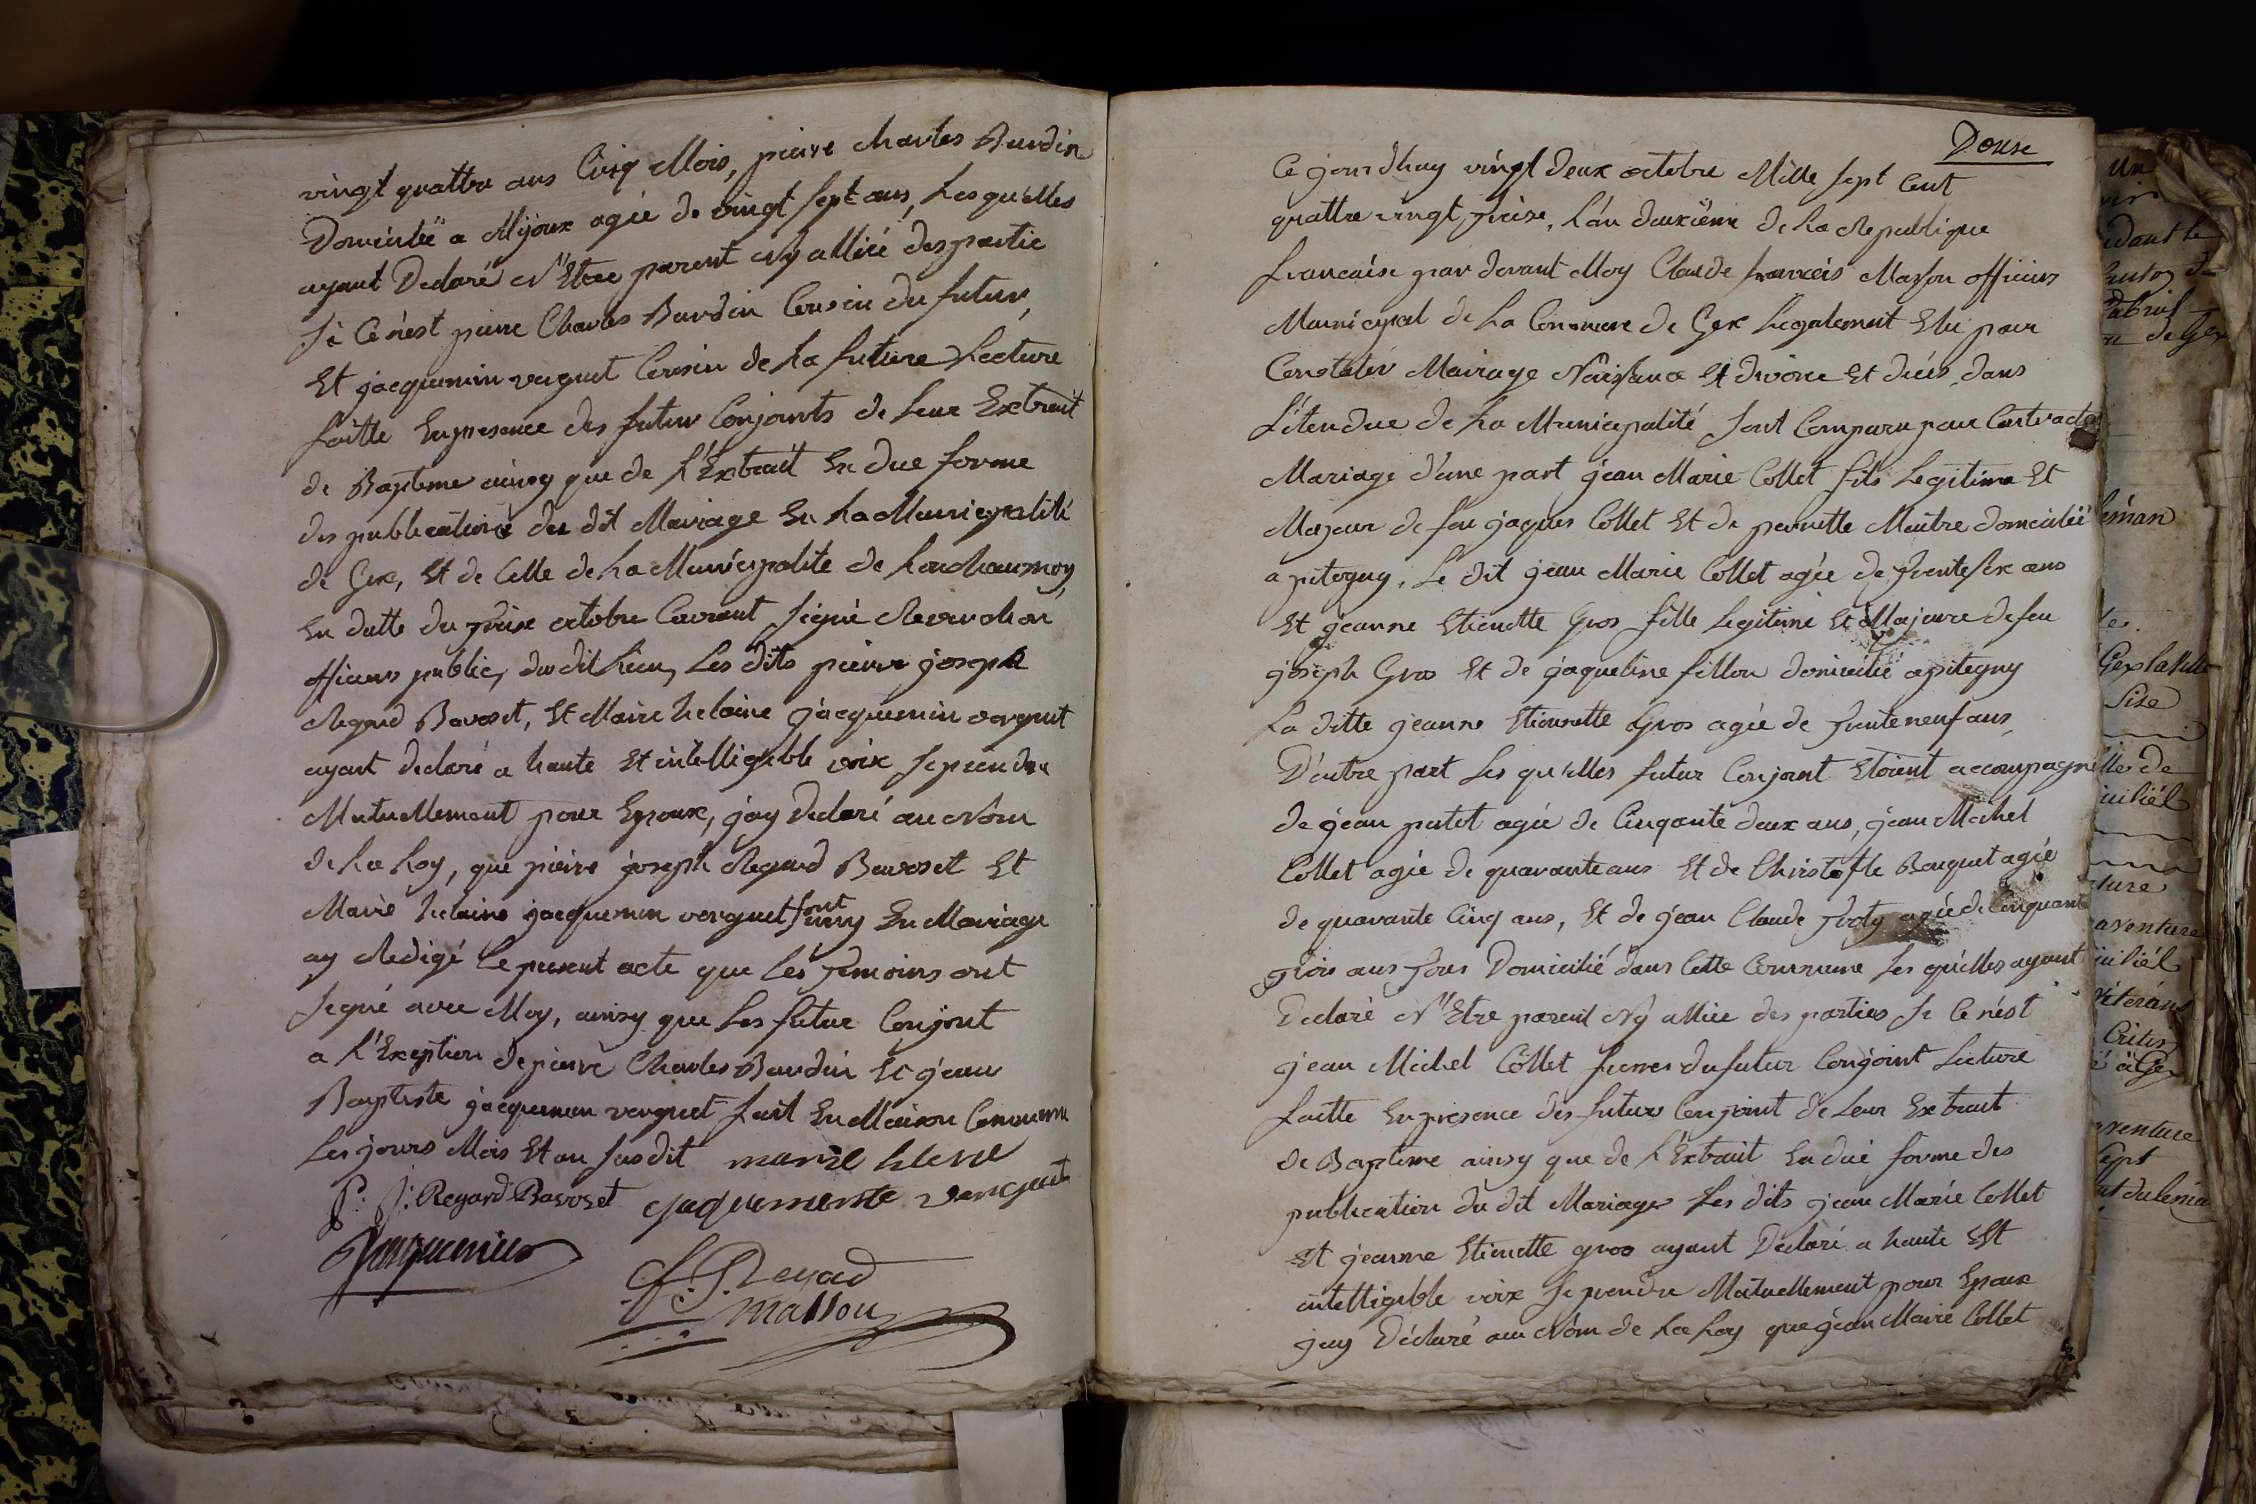 vingt quattre ans Cinq Mois, pierre charles Burdin
Domicilié a Mijoux agée de vingt sept ans, Les quelles
ayant Declaré N'Etre parent Ny alliée des partie
si Ce n'est pierre Charles Burdin Cousin du futur,
Et jacquemin verguet Cousin de La future Lecture
faitte En presence des futur Conjoints de Leur Extrait
de Bapteme ainsy que de L'Extrait En due forme
des publications du dit Mariage En La Municipalité
de Gex, Et de Celle de La Municipalite de
En datte du treize octobre Courant signé
officiers public, du dit Lieu, Les dits pierre joseph
Regard Bavoset, Et Marie helaine jacquemin verguet
ayant declaré a haute Et intelligible voix se prendre
Mutuellement pour Epoux, j'ay Declaré au Nom
de La Loy, que pierre joseph Regard Bavoset Et
Marie helaine jacquemin verguet sont uny En Mariage
ay Redigé Le present acte que Les temoins ont
signé avec Moy, ainsy que Les futur Conjont
a L'Exception de pierre Charles Burdin Et jean
Baptiste jacquemin verguet fait En Maison Commune
Les jours Mois Et an susdit marie helene
P: J: Regard Bavozet jaquemente verguet
Jacquemier
f: J: Regad
Masson
Douse
Ce jourdhuy vingt deux octobre Mille sept Cent
quattre vingt treize, L'an deuxieme de La Republique
francaise par devant Moy Claude francois Masson officiers
Municipal de La Commune de Gex Legalement Elu pour
Constater Mariage Naissance Et divorce Et décés, dans
L'étendue de La Municipalité sont Comparu pour Contracter
Mariage d'une part jean Marie Collet fils Legitime Et
Majeur de feu jaques Collet Et de pernette Maitre domiciliée
a pitegny, Le dit jean Marie Collet agée de trente six ans
Et jeanne Etienette Gros fille Legitime Et Majeure de feu
joseph Gros Et de jaqueline fillon domicilié a pitegny
La ditte jeanne Etienette Gros agée de trente neuf ans,
D'autre part Les quelles futur Conjont Etoient accompagné
de jean putet agée de Cinqante deux ans, jean Michel
Collet agée de quarante ans Et de Christofle Bouquet agée
de quarante Cinq ans, Et de jean Claude agée de Cinquante
trois ans tous Domicilié dans Cette Commune Les quelles ayant
Declaré N'Etre parent Ny alliée des parties si Ce n'est
jean Michel Collet freres du futur Conjoint Lecture
faitte En presence des futurs Conjoint de Leur Extrait
de Bapteme ainsy que de L'Extrait En due forme des
publication du dit Mariage Les dits jean Marie Collet
Et jeanne Etienette gros ayant Declaré a haute Et
intelligible voix se prendre Mutuellement pour Epoux
j'ay Déclaré au Nom de La Loy que jean Marie Collet